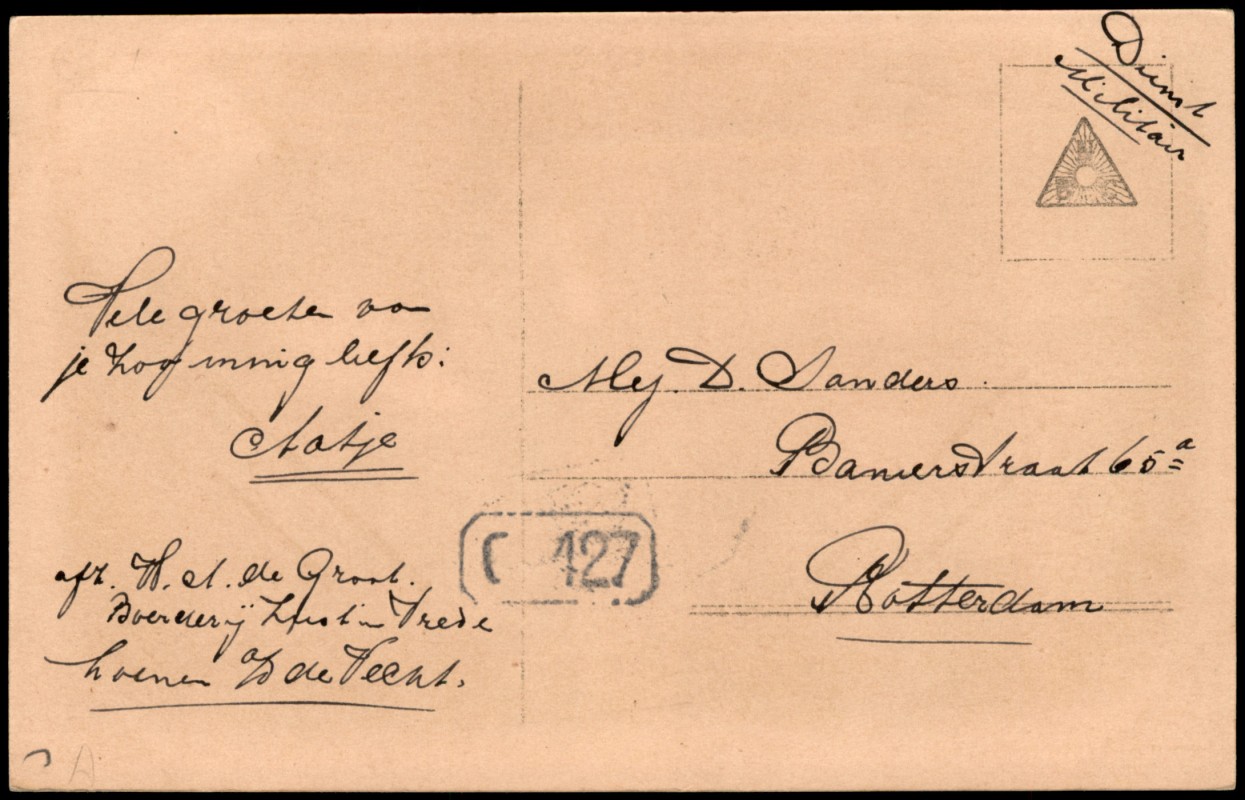 Dienst
Militair
Vele groeten van
je zoo innig liefh:
Aatje
afz. W. A. de Groot.
Boerderij Lust in Vrede
Loenen a/d de Vecht.
Mej. D. Sanders.
Banierstraat 65a
Rotterdam
C 427
A